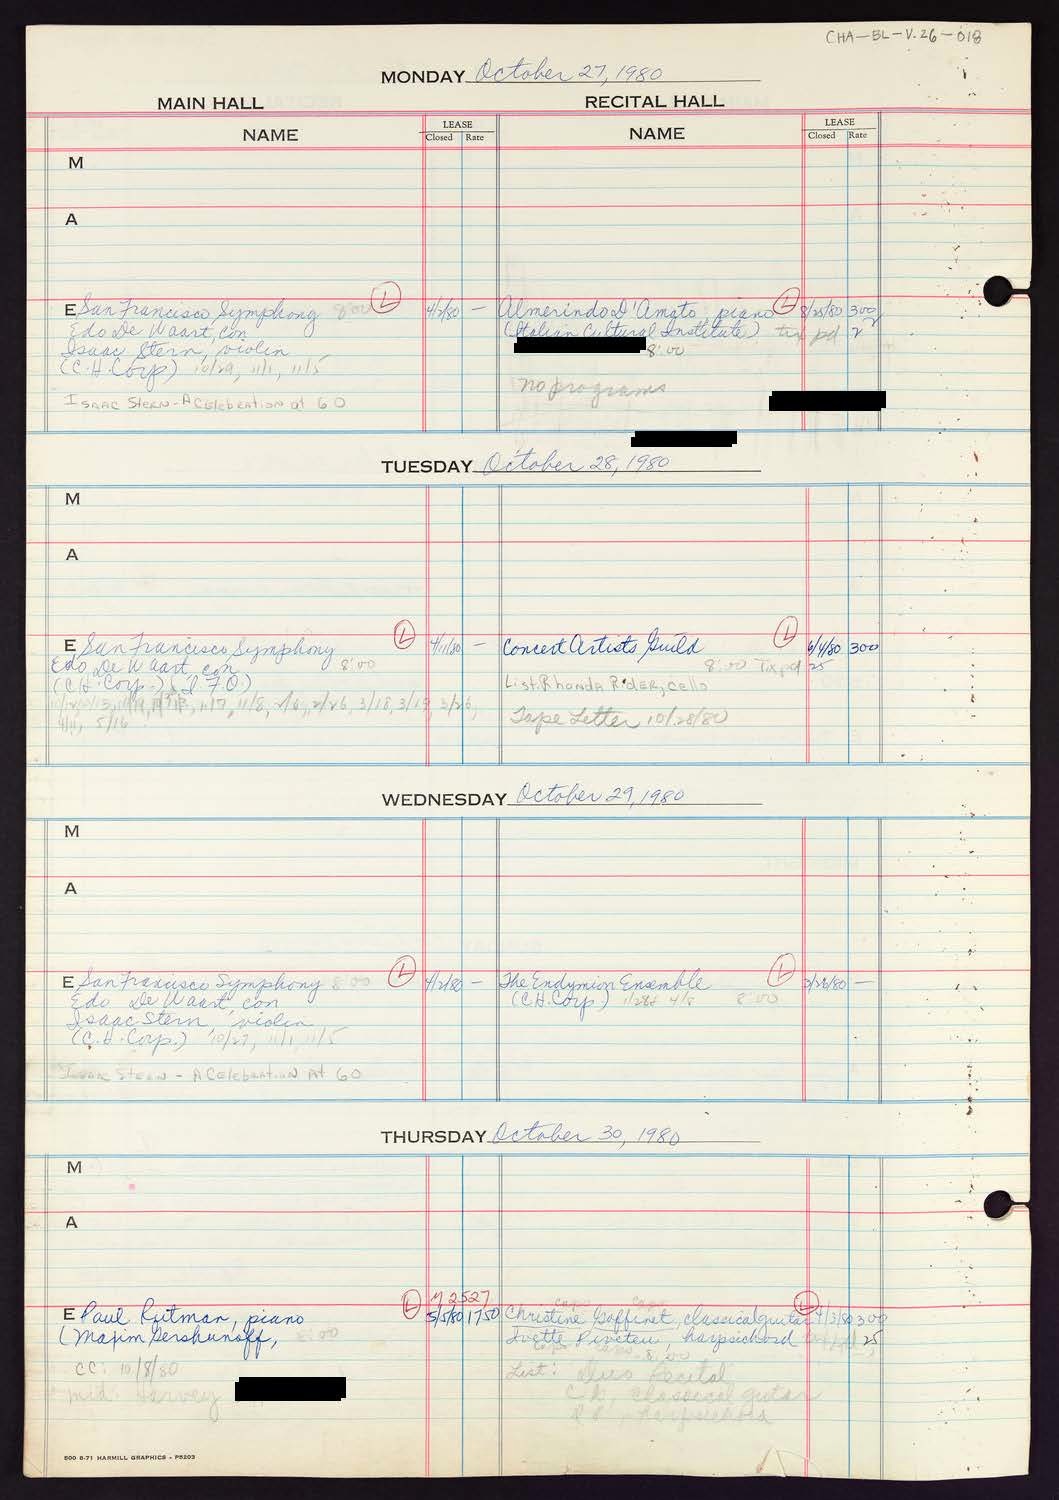 CHA-BL-V.26-018
MONDAY October 27, 1980
MAIN HALL RECITAL HALL
NAME LEASE Closed Rate NAME LEASE Closed Rate
M
A
E San Francisco Symphony 8:00 L 4/2/80 — Almerindo D'Amato, piano L 8/25/80 300
Edo De Waart, con (Italian Cultural Institute) tix pd
Isaac Stern, violin 8:00
(C.H. Corp) 10/29, 11/1, 11/5
no programs
Isaac Stern - A Celebration at 60
TUESDAY October 28, 1980
M
A
E San Francisco Symphony L 4/11/80 — Concert Artists Guild L 6/4/80 300
Edo De Waart, con 8:00 8:00 Tix pd 25
(C.H. Corp.) (I.F.O.) List: Rhonda Rider, cello
11/7, 11/8, 2/26, 3/18, 3/19, 3/26,
5/16 Tape Letter 10/28/80
WEDNESDAY October 29, 1980
M
A
E San Francisco Symphony 8:00 L 4/2/80 — The Endymion Ensemble L 3/26/80 —
Edo De Waart, con (C.H. Corp.) 1/28 & 4/8 8:00
Isaac Stern, violin
(C.H. Corp.) 10/27, 11/1, 11/5
Isaac Stern - A Celebration At 60
THURSDAY October 30, 1980
M
A
2527
E Paul Rutman, piano L 5/5/80 1750 Christine Gaffinet, classical guitar L 4/3/80 300
(Maxim Gershunoff, 8:00 harpsichord 25
8:00
CC: 10/8/80 List: Duo Recital
mid: Harvey C.G., classical guitar
harpsichord
500 6-71 HARMILL GRAPHICS - P5203